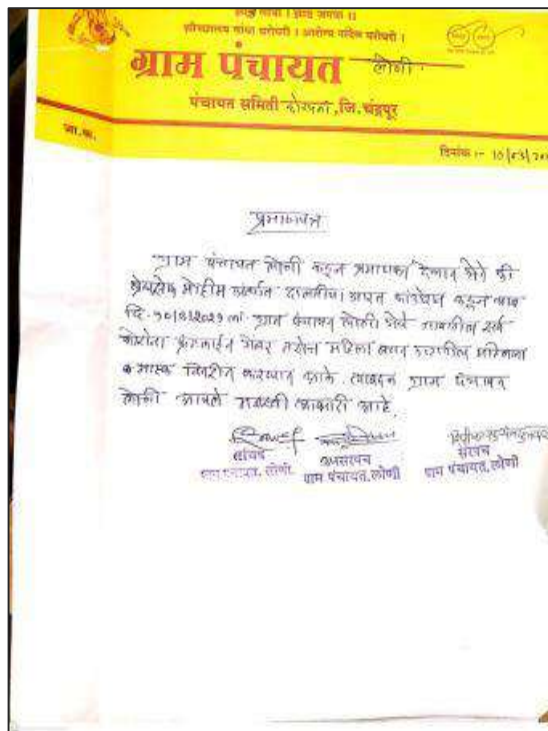 शौचालय बांधा घरोघरी । आरोग्य नांदेल घरोघरी ।
ग्राम पंचायत लोणी.
पंचायत समिती कोरपना, जि. चंद्रपूर
जा.क्र.
दिनांक :- 10/03/20
प्रमाणपत्र
ग्राम पंचायत लोणी कडून प्रमाणपत्र देण्यात येते की
मोहीम अंतर्गत कडून आज
दि. 10/3/2021 ला ग्राम पंचायत लोणी येथे गावातील सर्व
कोरोना फ्रंटलाईन वर्कर तसेच महिला बचत गटातील महिलांना
मास्क वितरीत करण्यात आले. त्याबद्दल ग्राम पंचायत
लोणी आपले आभारी आहे.
सचिव उपसरपंच सरपंच
ग्राम पंचायत, लोणी ग्राम पंचायत, लोणी ग्राम पंचायत, लोणी